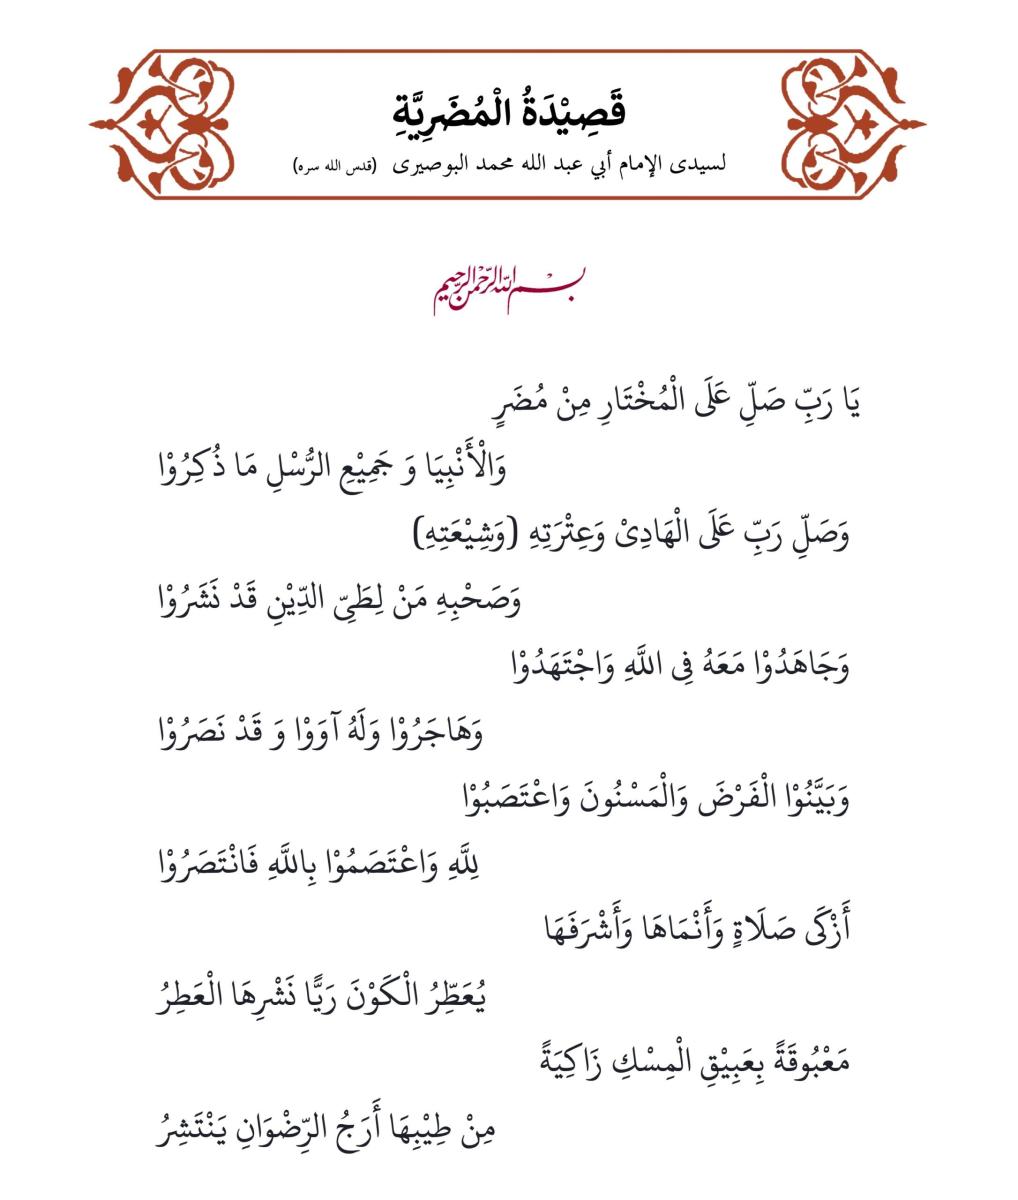 قَصِيْدَةُ الْمُضَرِيَّةِ
لسيدى الإمام أبي عبد الله محمد البوصيرى (قدس الله سره)
بسم الله الرحمن الرحيم
يَا رَبِّ صَلِّ عَلَى الْمُخْتَارِ مِنْ مُضَرٍ
وَالْأَنْبِيَا وَ جَمِيْعِ الرُّسْلِ مَا ذُكِرُوْا
وَصَلِّ رَبِّ عَلَى الْهَادِىْ وَعِتْرَتِهِ (وَشِيْعَتِهِ)
وَصَحْبِهِ مَنْ لِطَىِّ الدِّيْنِ قَدْ نَشَرُوْا
وَجَاهَدُوْا مَعَهُ فِى اللَّهِ وَاجْتَهَدُوْا
وَهَاجَرُوْا وَلَهُ آوَوْا وَ قَدْ نَصَرُوْا
وَبَيَّنُوْا الْفَرْضَ وَالْمَسْنُونَ وَاعْتَصَبُوْا
لِلَّهِ وَاعْتَصَمُوْا بِاللَّهِ فَانْتَصَرُوْا
أَزْكَى صَلَاةٍ وَأَنْمَاهَا وَأَشْرَفَهَا
يُعَطِّرُ الْكَوْنَ رَيًّا نَشْرِهَا الْعَطِرُ
مَعْبُوقَةً بِعَبِيْقِ الْمِسْكِ زَاكِيَةً
مِنْ طِيْبِهَا أَرَجُ الرِّضْوَانِ يَنْتَشِرُ